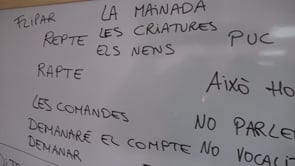 FLIPAR
LA MAINADA
REPTE LES CRIATURES PUC
ELS NENS
RAPTE
AIXÒ HO
LES COMANDES
NO PARLE
DEMANARÉ EL COMPTE NO VOCALI
DEMANAR